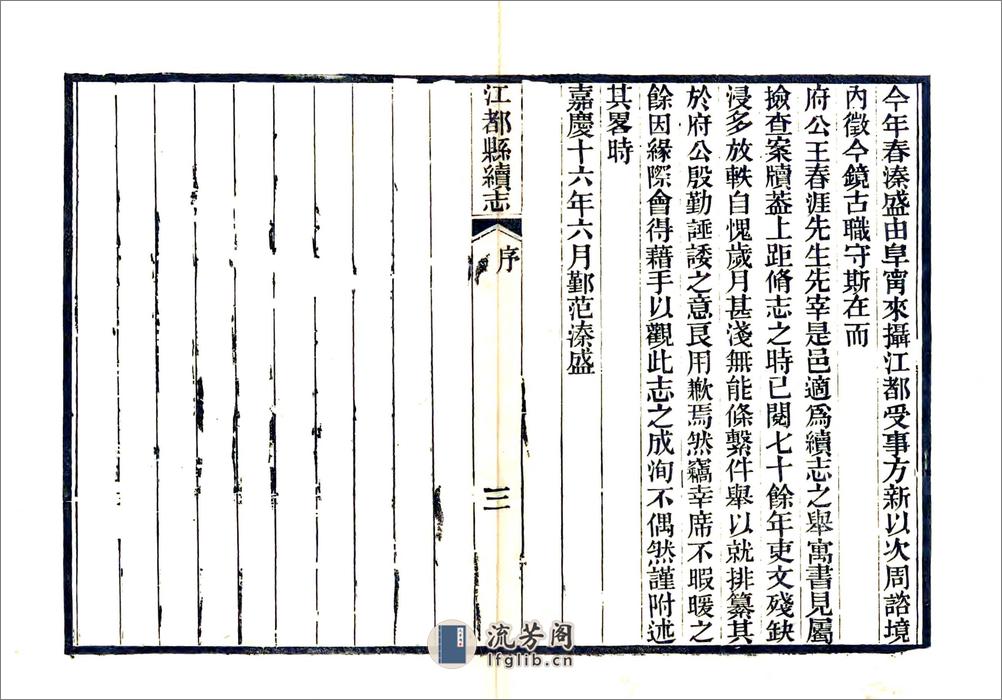 今年春溱盛由阜甯來攝江都受事方新以次周諮境
內徵今鏡古職守斯在而
府公王春涯先生先宰是邑適爲續志之舉寓書見屬
撿查案牘葢上距脩志之時已閱七十餘年吏文殘缺
浸多放軼自愧歲月甚淺無能條繫件舉以就排纂其
於府公殷勤諈諉之意良用歉焉然竊幸席不暇暖之
餘因緣際會得藉手以觀此志之成洵不偶然謹附述
其畧時
嘉慶十六年六月鄞范溱盛
江都縣續志
序
三
流芳阁
lfglib.cn